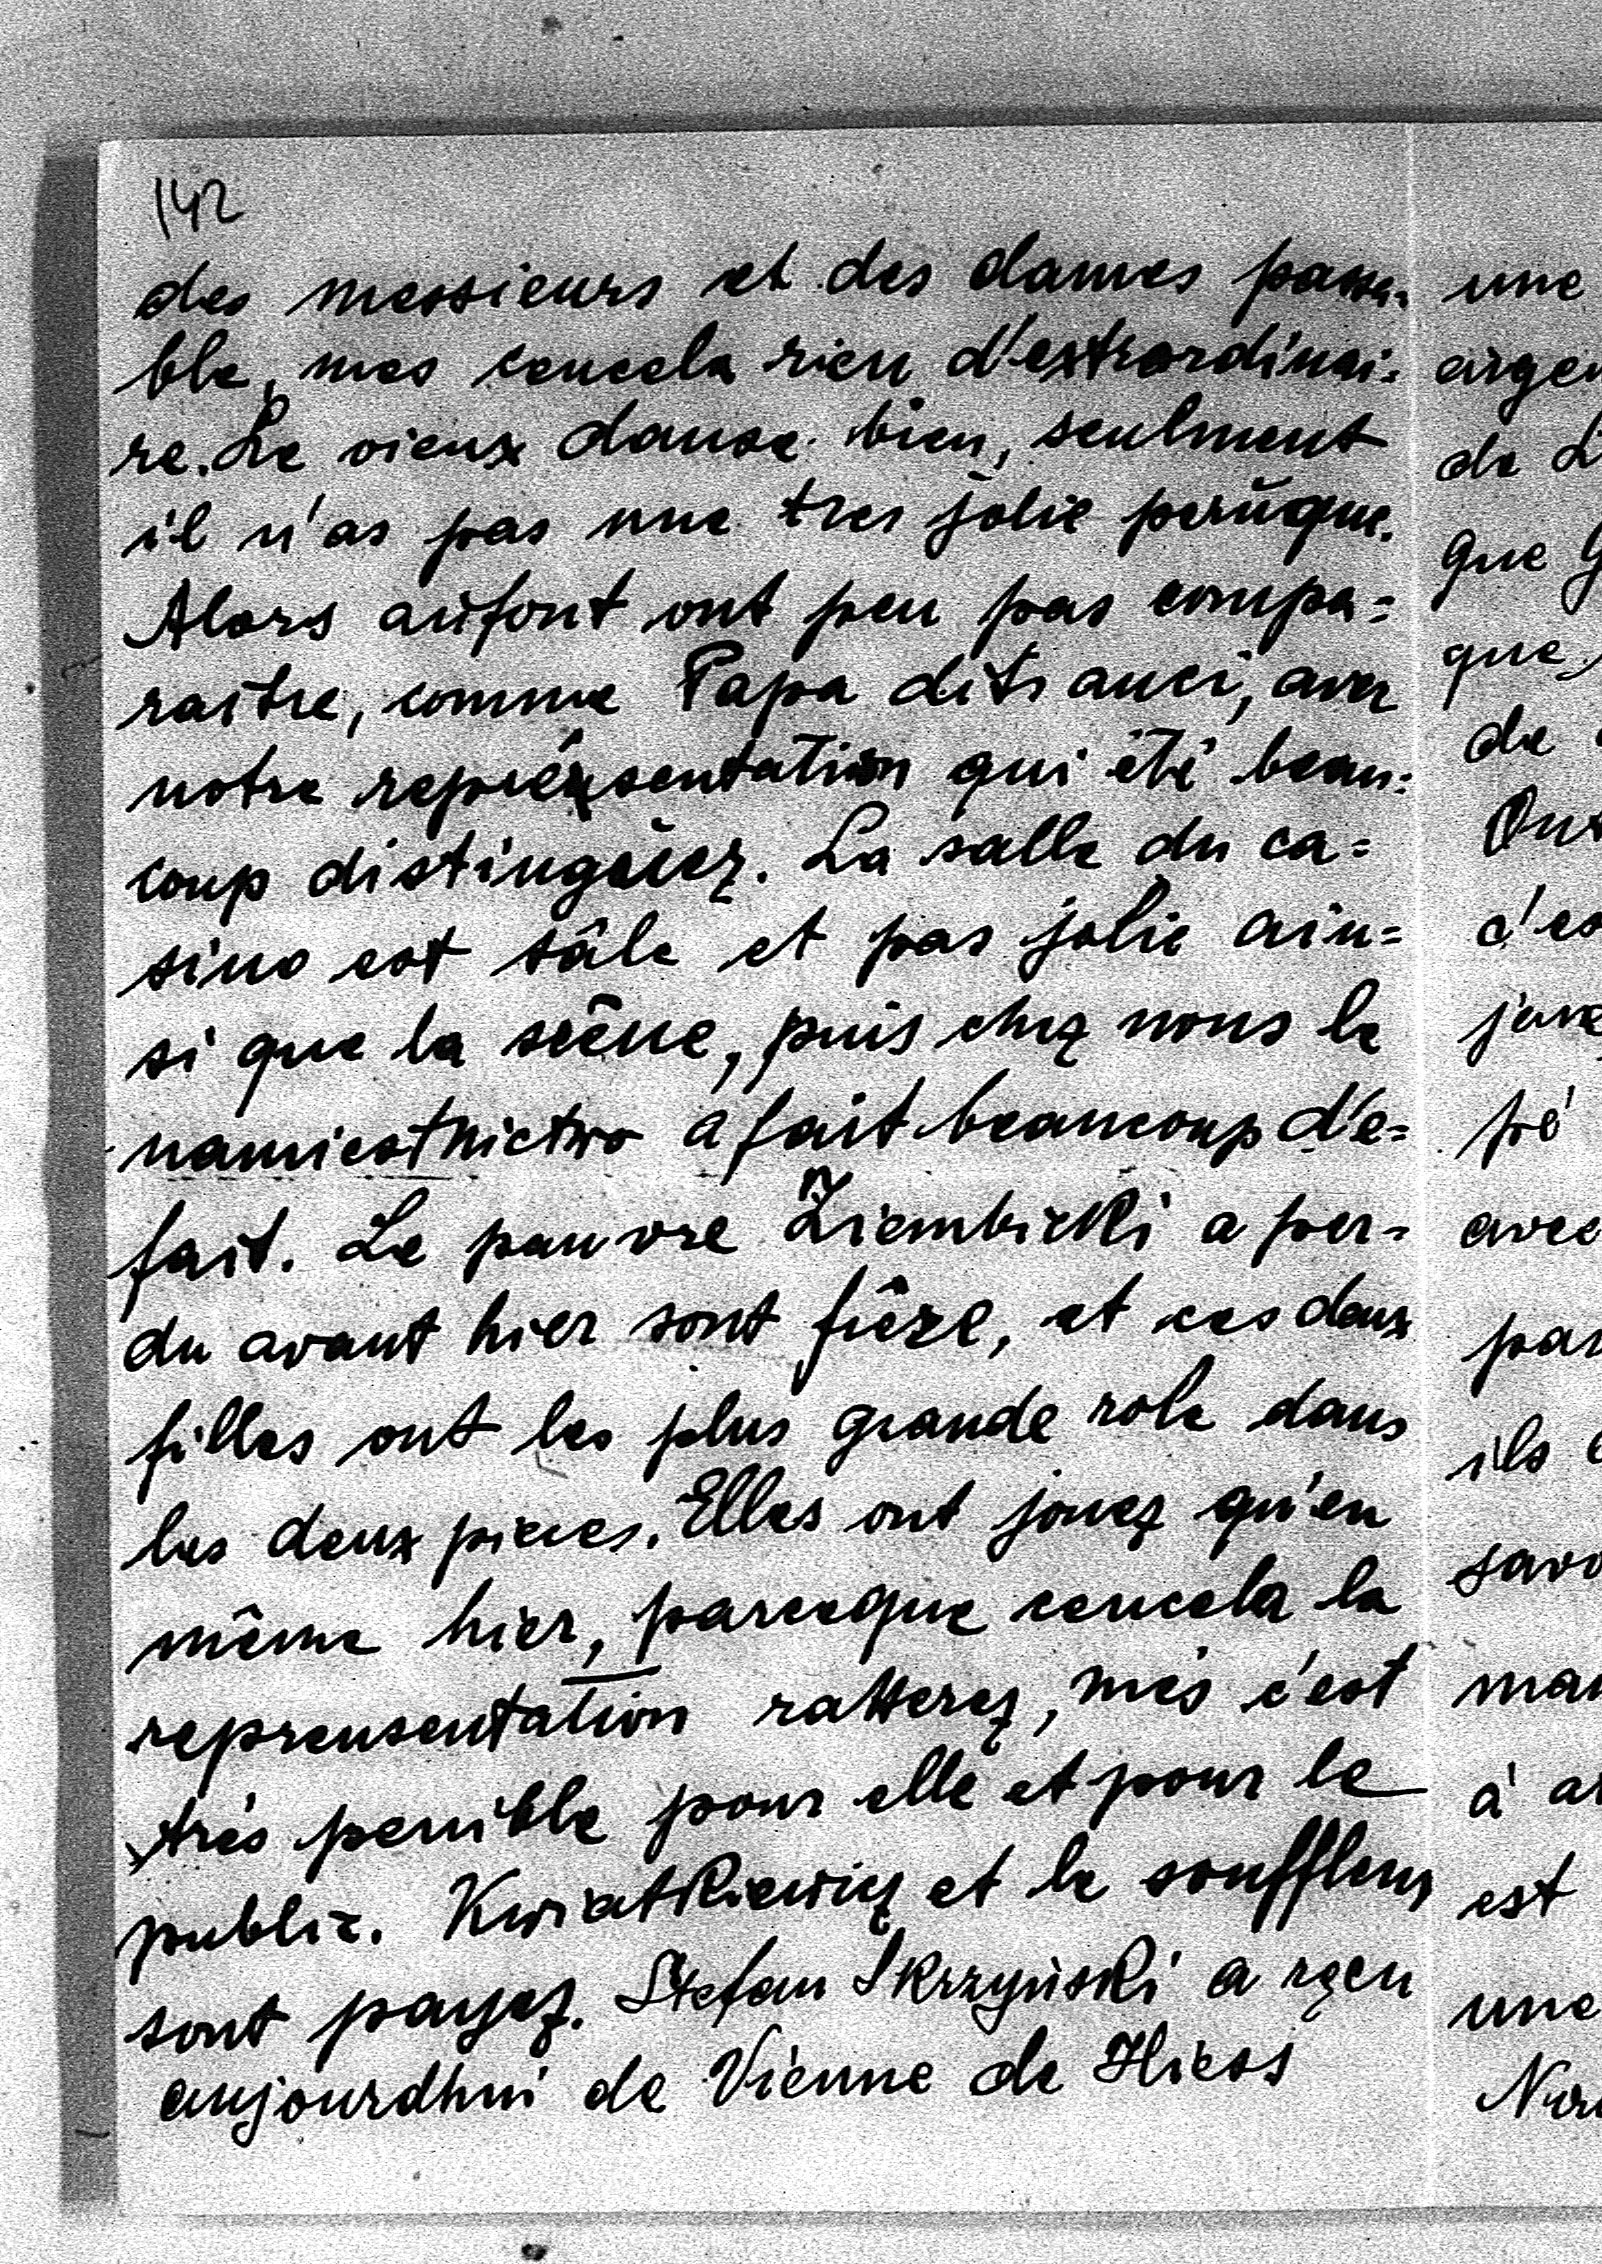 142
des messieurs et des dames passa=
ble, mes cencela rien d'extrordinai=
re. Le vieux danse bien, seulment
il n'as pas une tres jolie perûque.
Alors aûfont ont peu pas compa=
raître, comme Papa dit anci, avez
notre repréxsentation qui été beau=
coup distinguèez. La salle du ca=
sino est sâle et pas jolie ain=
si que la scêne, puis chez nous le
namiestnictwo a fait beaucoup d'e=
fait. Le pauvre Ziembicki a per=
du avant hier sont fiêre, et ces deux
filles ont les plus grande role dans
les deux pieces. Elles ont jouez qu'en
même hier, parceque cencela la
reprensentation ratterez, més c'est
trés penible pour elle et pour le
public. Kwiatkiewicz et le souffleur
sont payez. Stefan Skrzyński a rçeu
aujourdhui de Vienne de Hiess
une
argen
de L
que
que
de
Ont
c'es
pé
avec
par
ils
savo
man
à
est
une